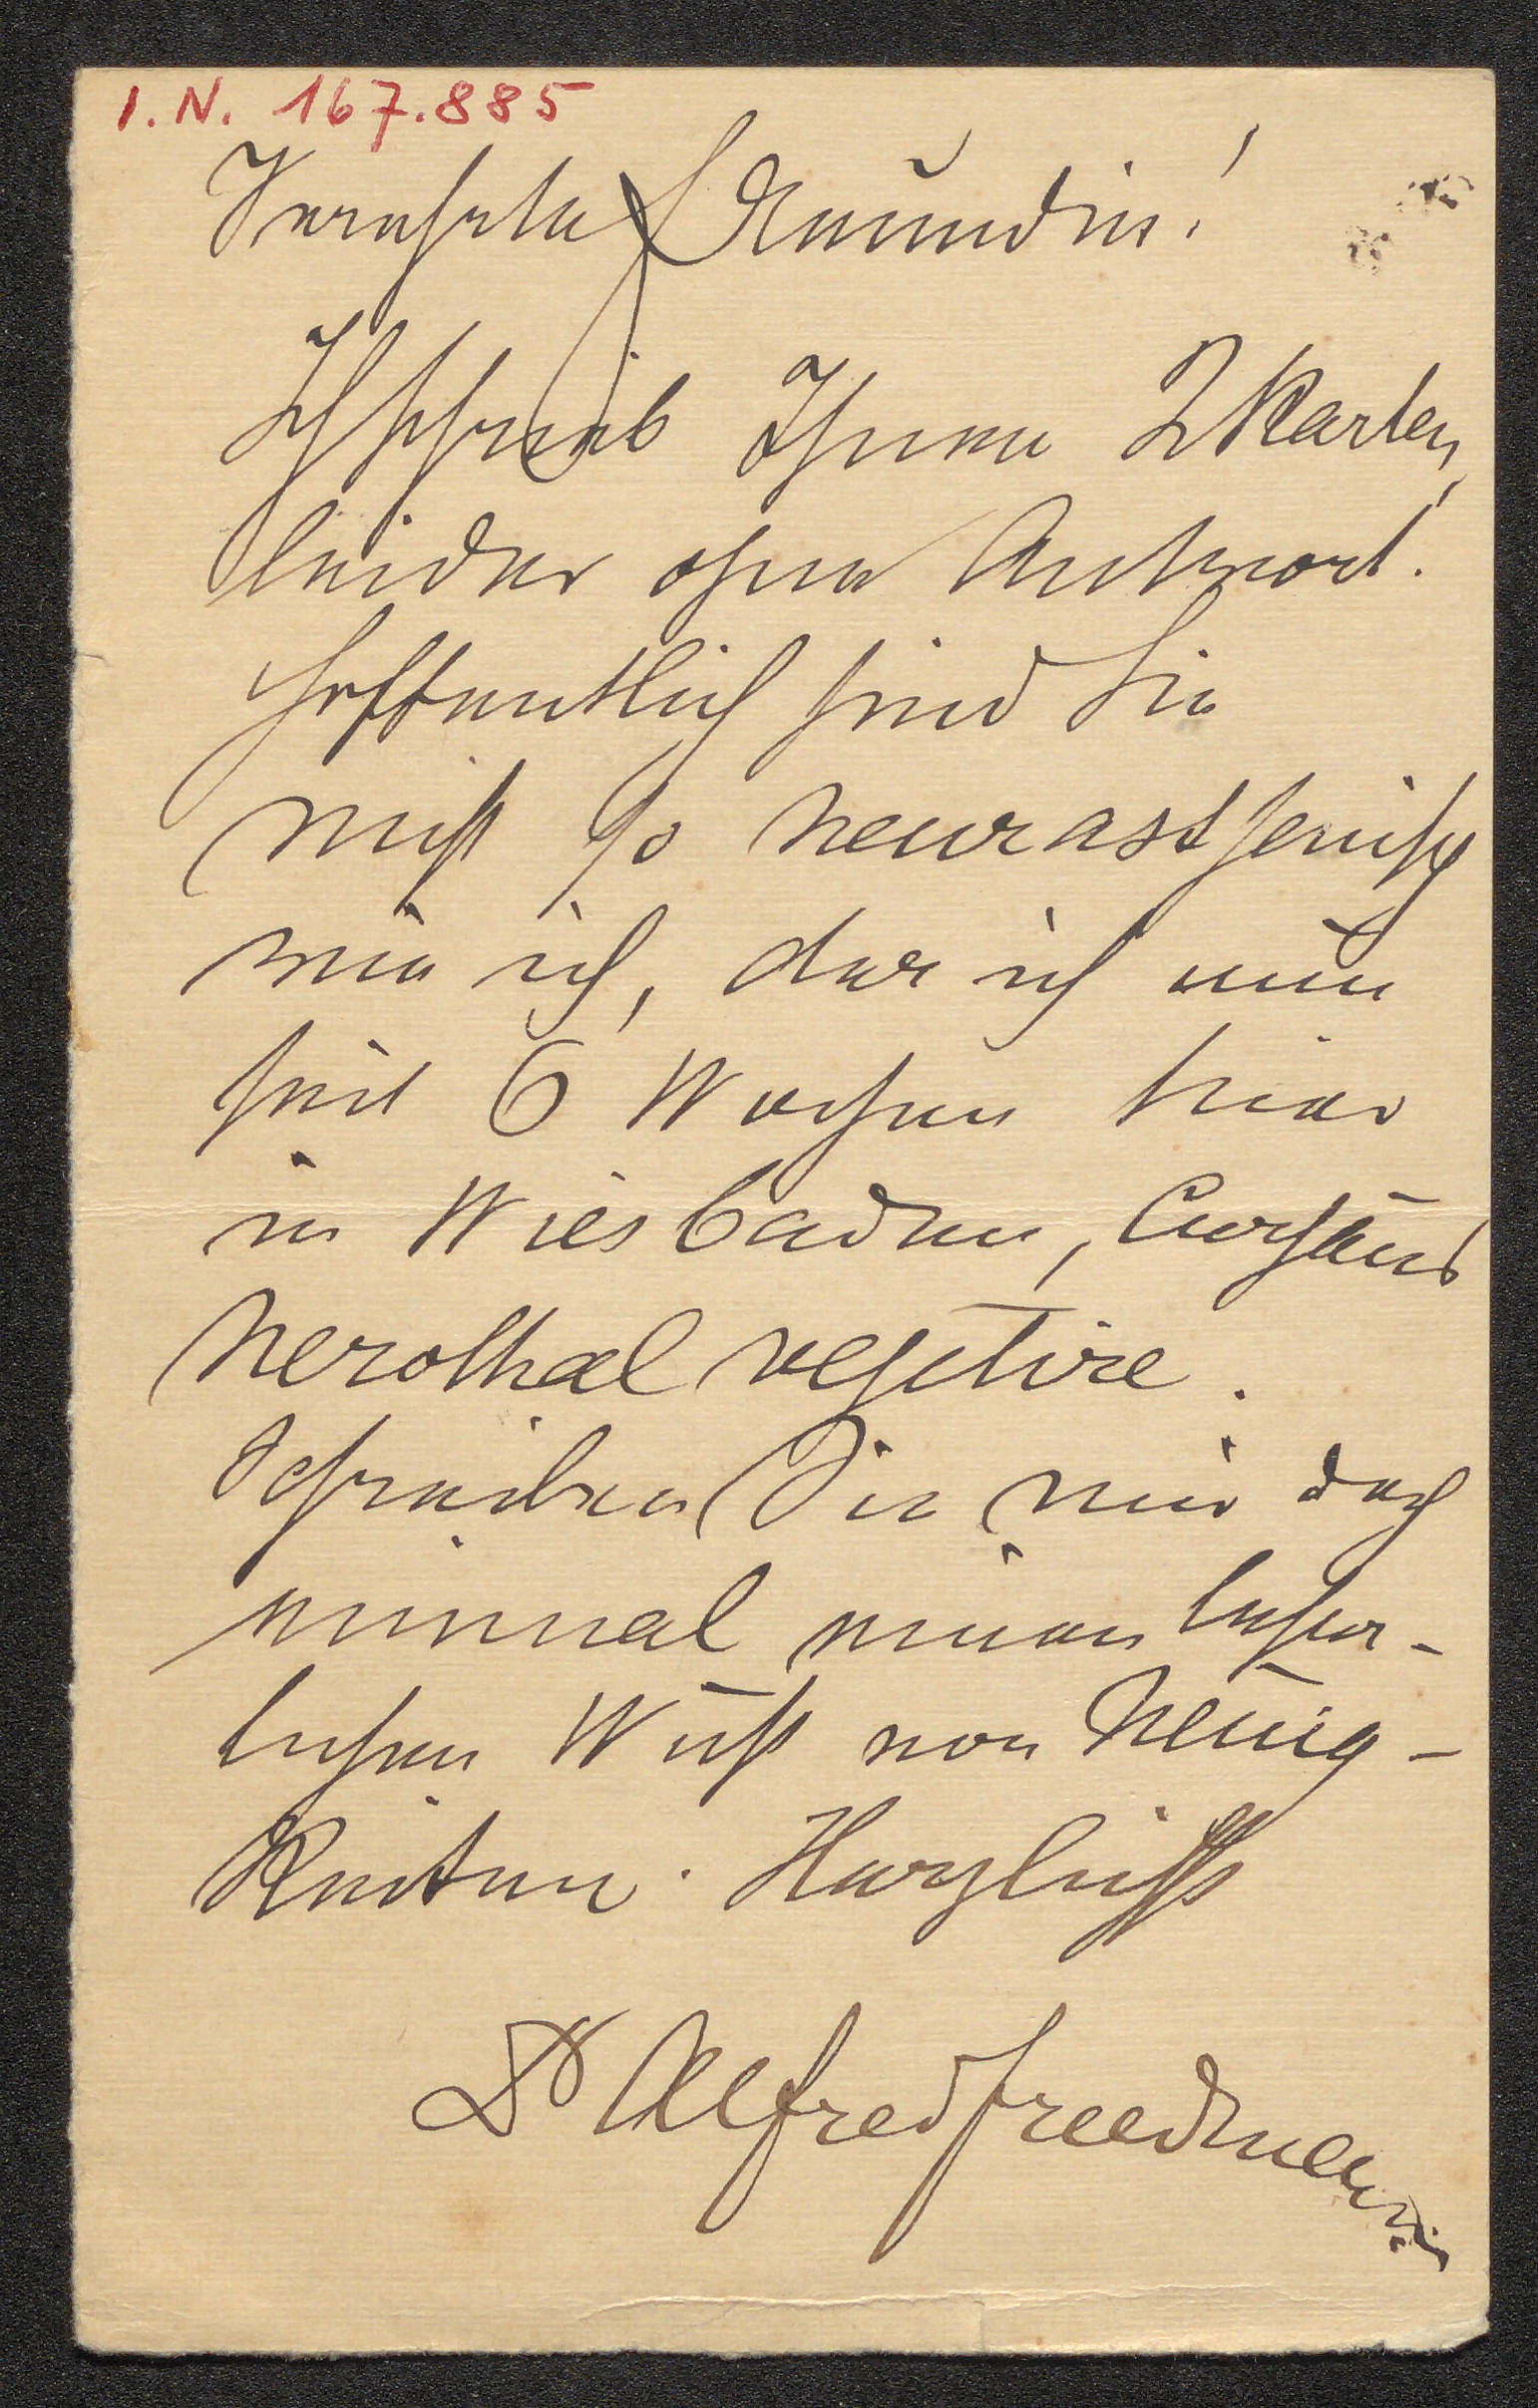 I.N. 167.885
Verehrte Freundin!
Ich schrieb Ihnen 2 Karten,
leider ohne Antwort.
Hoffentlich sind Sie
nicht so neurasthenisch
wie ich, der ich nun
seit 6 Wochen hier
in Wiesbaden, Curhaus
Nerothal vegetire.
Schreiben Sie mir doch
einmal einen
Wust von Neuig-
keiten. Herzlichst
Dr Alfred Friedmann